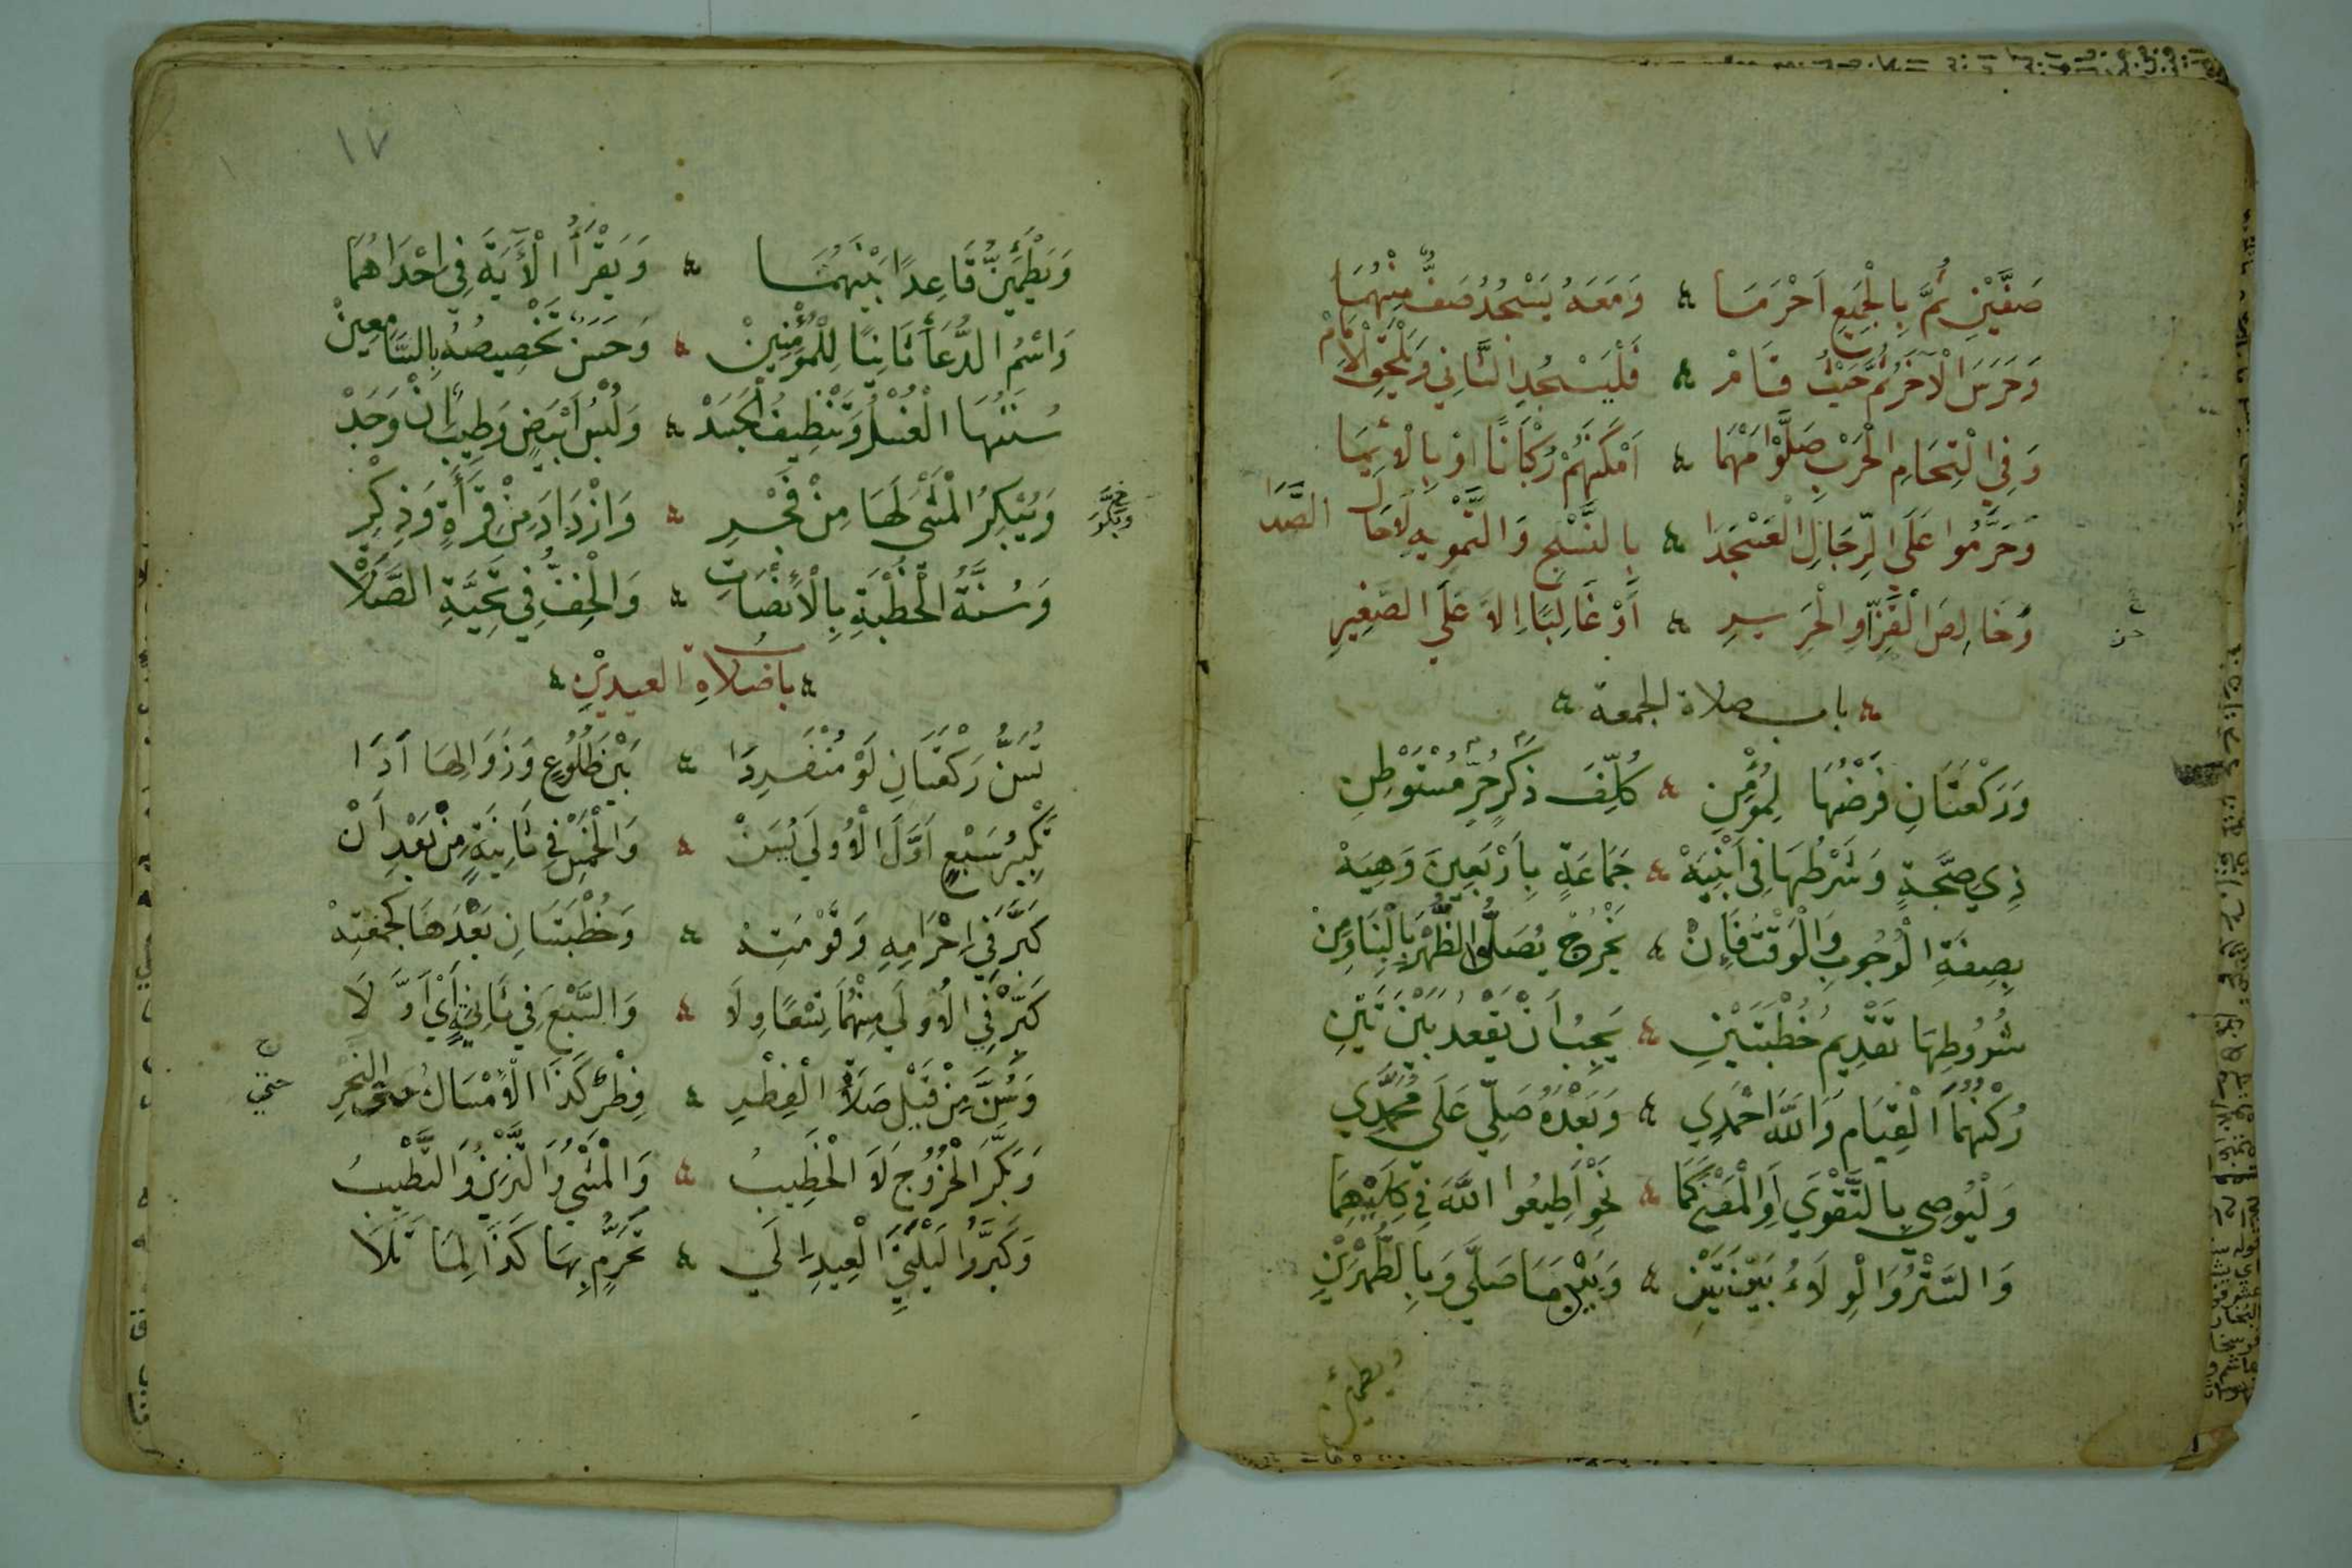 صَفَّيْنِ ثُمَّ بِالْجَمِيعِ اَحْرَمَا ۞ وَمَعَهُ يَسْجُدُ صَفٌّ مِنْهُمَا
وَحَرَسَ الْآخَرُ ثُمَّ حَيْثُ قَامْ ۞ فَلْيَسْجُدِ الثَّانِي وَيَلْحَقِ الْاِمَامْ
وَفِي الْتِحَامِ الْحَرْبِ صَلَّوْا مَهْمَا ۞ اَمْكَنَهُمْ رُكْبَانًا اَوْ بِالْاِيْمَا
وَحَرَّمُوا عَلَى الرِّجَالِ الْعَسْجَدَا ۞ بِالنَّسْجِ وَالتَّمْوِيهِ لَا حَالَ الصَّدَا
وَخَالِصَ الْقَزِّ اَوِ الْحَرِيرِ ۞ اَوْ غَالِبًا اِلَّا عَلَى الصَّغِيرِ
باب صلاة الجمعة
وَرَكْعَتَانِ فَرْضُهَا لِمُؤْمِنِ ۞ كُلِّفَ ذَكَرٍ حُرٍّ مُسْتَوْطِنِ
ذِي صِحَّةٍ وَشَرْطُهَا فِي اَبْنِيَهْ ۞ جَمَاعَةٍ بِاَرْبَعِينَ وَهِيَهْ
بِصِفَةِ الْوُجُوبِ وَالْوَقْتُ فَاِنْ ۞ يَخْرُجْ يُصَلُّوا الظُّهْرَ بِالْبِنَا وَمِنْ
شُرُوطِهَا تَقْدِيمُ خُطْبَتَيْنِ ۞ يَجِبُ أَنْ يَقْعُدَ بَيْنَ تَيْنِ
رُكْنُهُمَا الْقِيَام وَاللّٰهَ احْمَدِي ۞ وَبَعْدَهُ صَلِّي عَلَى مُحَمَّدِي
وَلْيُوصِي بِالتَّقْوَى اَوِ الْمَعْنَى كَمَا ۞ نَحْوِ أَطِيعُوا اللّٰهَ فِي كِلَيْهِمَا
وَالسَّتْرُ وَالْوِلَاءُ بَيْنَ تَيْنِ ۞ وَبَيْنَ مَا صَلَّى وَبِالطُّهْرَيْنِ
ويطمئن
١٧
وَيَطْمَئِنُّ قَاعِدًا بَيْنَهُمَا ۞ وَيَقْرَأُ الْآيَةَ فِي اِحْدَاهُمَا
وَاسْمُ الدُّعَا ثَانِيًا لِلْمُؤْمِنِينْ ۞ وَحَسَنٌ تَخْصِيصُهُ بِالسَّامِعِينْ
سُنَنُهَا الْغُسْلُ وَتَنْظِيفُ الْجَسَدْ ۞ وَلُبْسُ اَبْيَضٍ وَطِيبٌ اِنْ وَجَدْ
وَيُبْكِرُ الْمَشْيَ لَهَا مِنْ فَجْرِ ۞ وَازْدَادَ مِنْ قِرَأَةٍ وَذِكْرِ
وَسُنَّةُ الْخُطْبَةِ بِالْاِنْصَاتِ ۞ وَالْخِفُّ فِي تَحِيَّةِ الصَّلَاةْ
باب صَلَاةِ العيديْنِ
تُسَنُّ رَكْعَتَانِ لَوْ مُنْفَرِدَا ۞ بَيْنَ طُلُوعٍ وَزَوَالِهَا اَدَا
تَكْبِيرُ سَبْعٍ اَوَّلَ الْاُولَى يُسَنْ ۞ وَالْخَمْسُ فِي ثَانِيَةٍ مِنْ بَعْدِ اَنْ
كَبَّرَ فِي اِحْرَامِهِ وَقَوْمَتِهْ ۞ وَخُطْبَتَانِ بَعْدَهَا كَجُمْعَتِهْ
كَبَّرَ فِي الْاُولَى مِنْهُمَا تِسْعًا وِلَا ۞ وَالسَّبْعَ فِي ثَانِيَةٍ أَيْ اَوَّلَا
وَسُنَّ مِنْ قَبْلِ صَلَاةِ الْفِطْرِ ۞ فِطْرٌ كَذَا الْاِمْسَاكُ حتى النَّحْرِ
وَبَكَّرَ الْخُرُوجَ لَا الْخَطِيبُ ۞ وَالْمَشْيُ وَالتَّزْيِينُ وَالتَّطْيِيبُ
وَكَبَّرُوا لَيْلَتَيِ الْعِيدِ اِلَى ۞ تَحَرُّمٍ بِهَا كَذَا لِمَا تَلَا